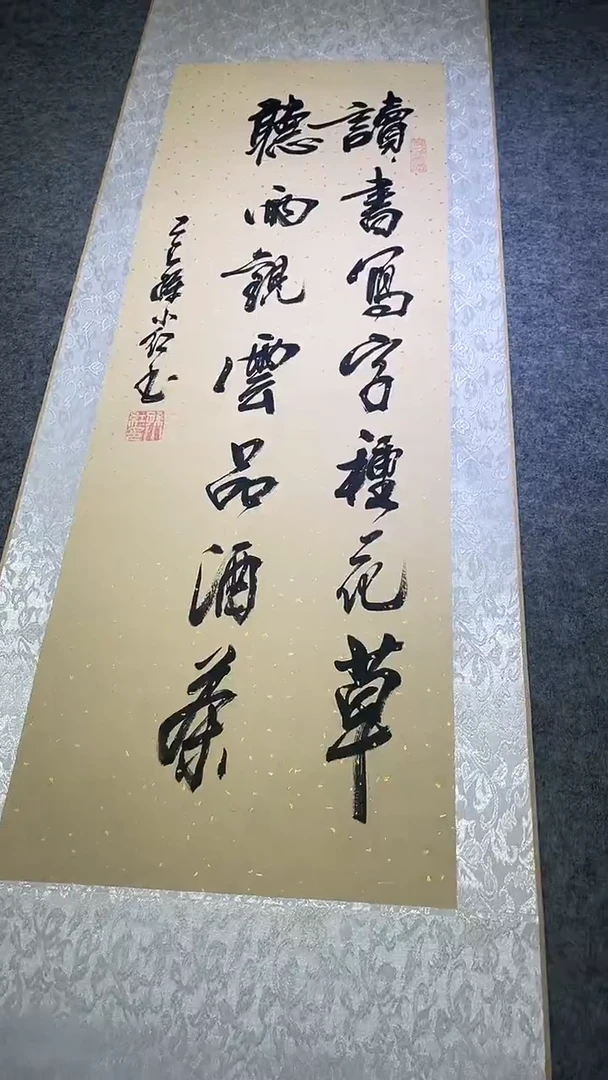 讀書寫字種花草
聽雨觀雲品酒茶
書